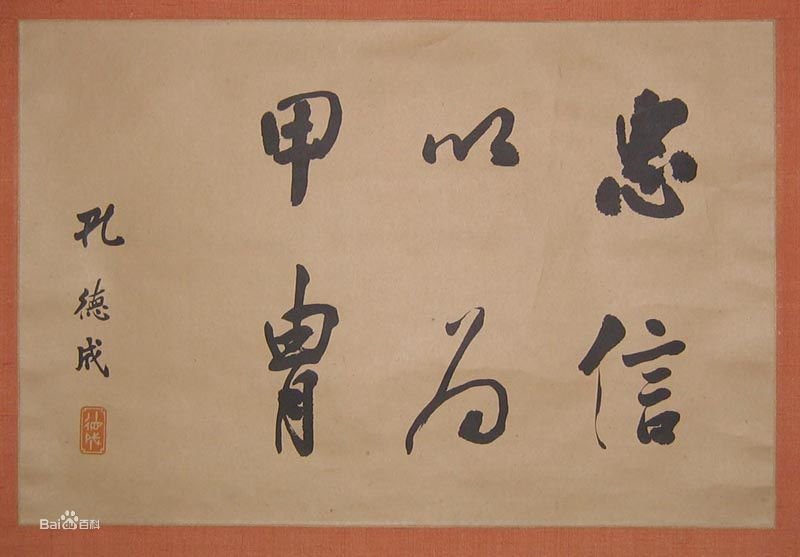 忠信
以为
甲胄
孔德成
Bai百科